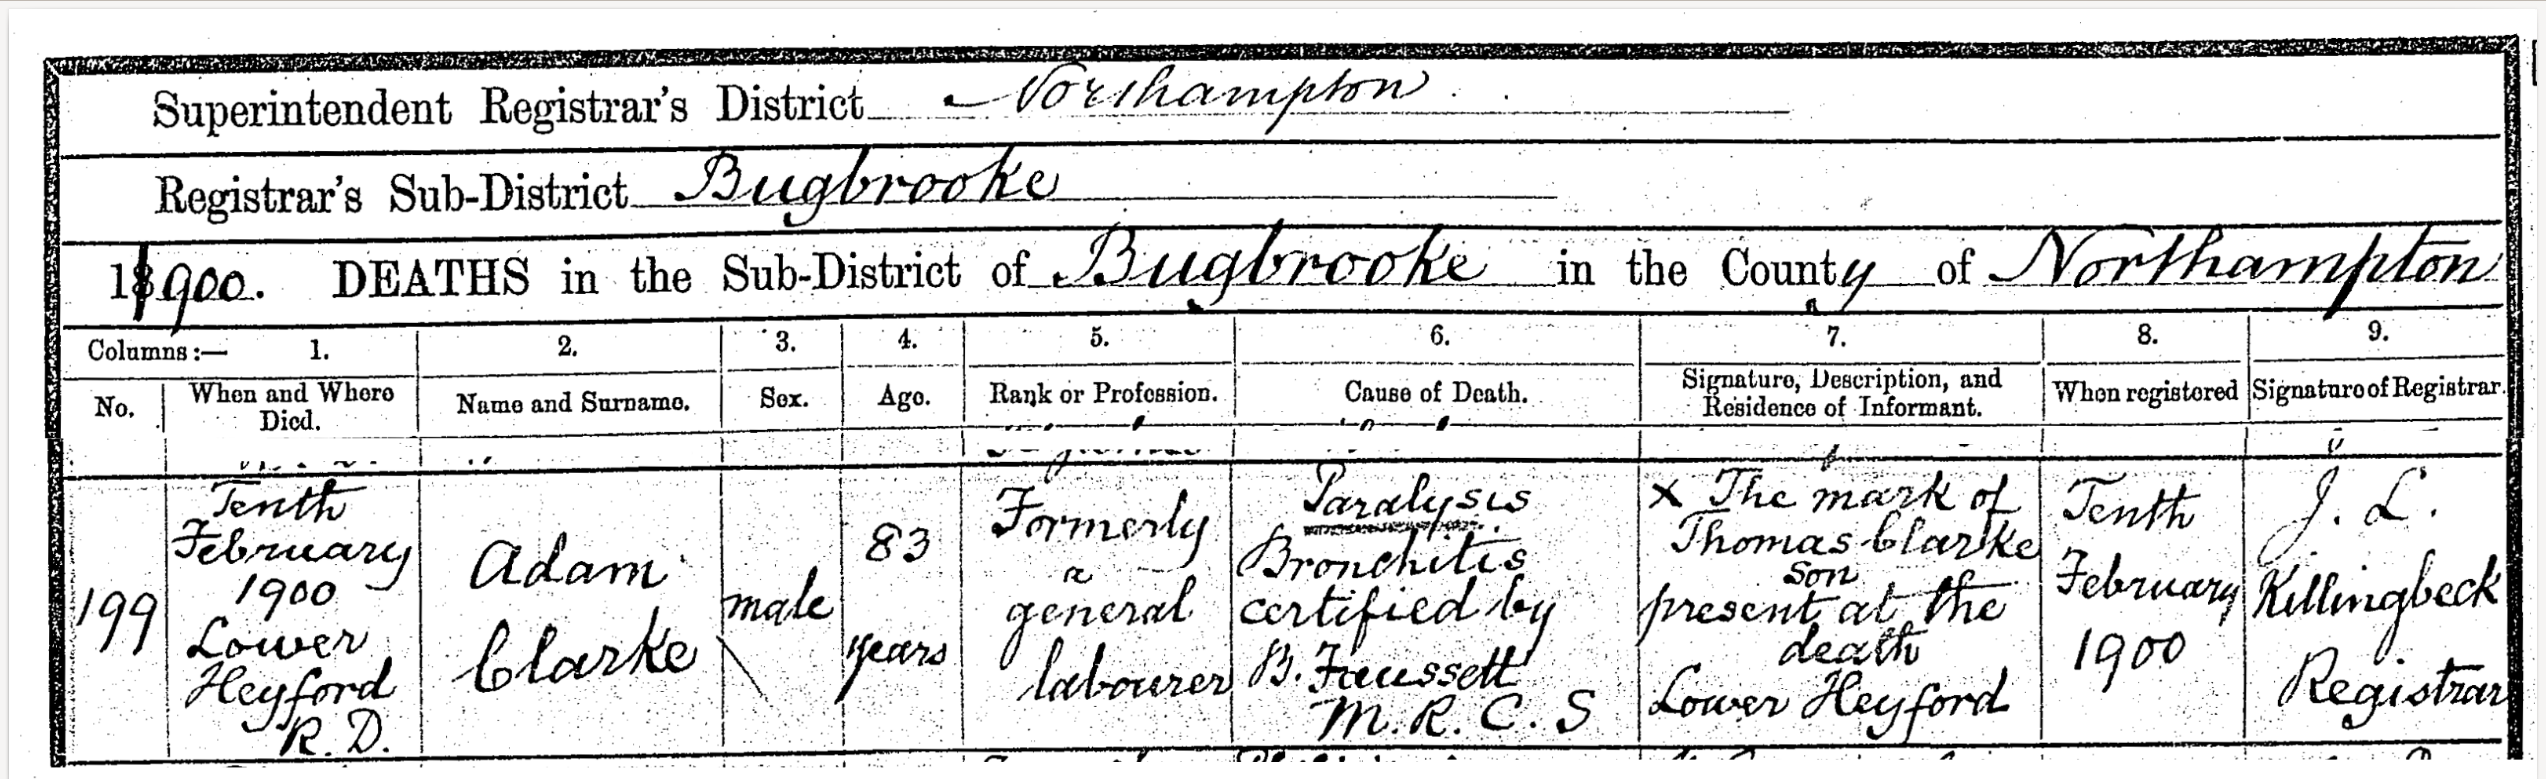 Superintendent Registrar's District Northampton
Registrar's Sub-District Bugbrooke
1900. DEATHS in the Sub-District of Bugbrooke in the County of Northampton
Columns:— 1. 2. 3. 4. 5. 6. 7. 8. 9.
No. When and Where Died. Name and Surname. Sex. Age. Rank or Profession. Cause of Death. Signature, Description, and Residence of Informant. When registered Signature of Registrar.
199
Tenth
February
1900
Lower
Heyford
R. D.
Adam
Clarke
male
83
years
Formerly
a
general
labourer
Paralysis
Bronchitis
certified by
B. Faussett
M. R. C. S
X The mark of
Thomas Clarke
son
present at the
death
Lower Heyford
Tenth
February
1900
J. L.
Killingbeck
Registrar